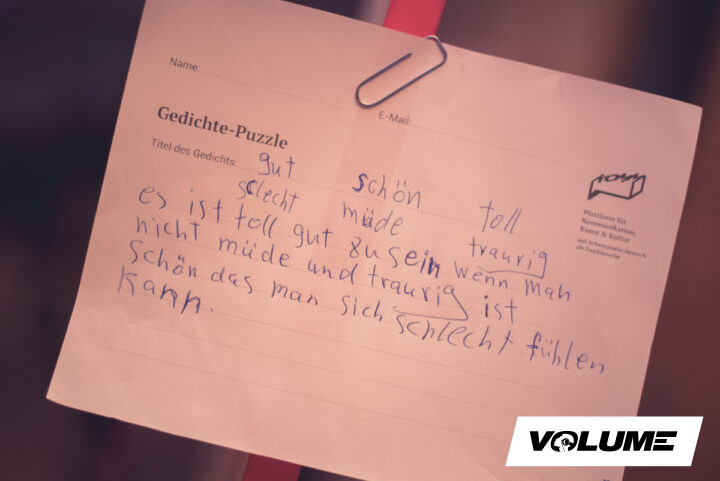 Name:
E-Mail:
Gedichte-Puzzle
Titel des Gedichts: gut schön toll
sclecht müde traurig
es ist toll gut zu sein wenn man
nicht müde und traurig ist
schön das man sich schlecht fühlen
kann.
Plattform für
Kommunikation,
Kunst & Kultur
mit Schwerpunkt Deutsch
als Zweitsprache
VOLUME